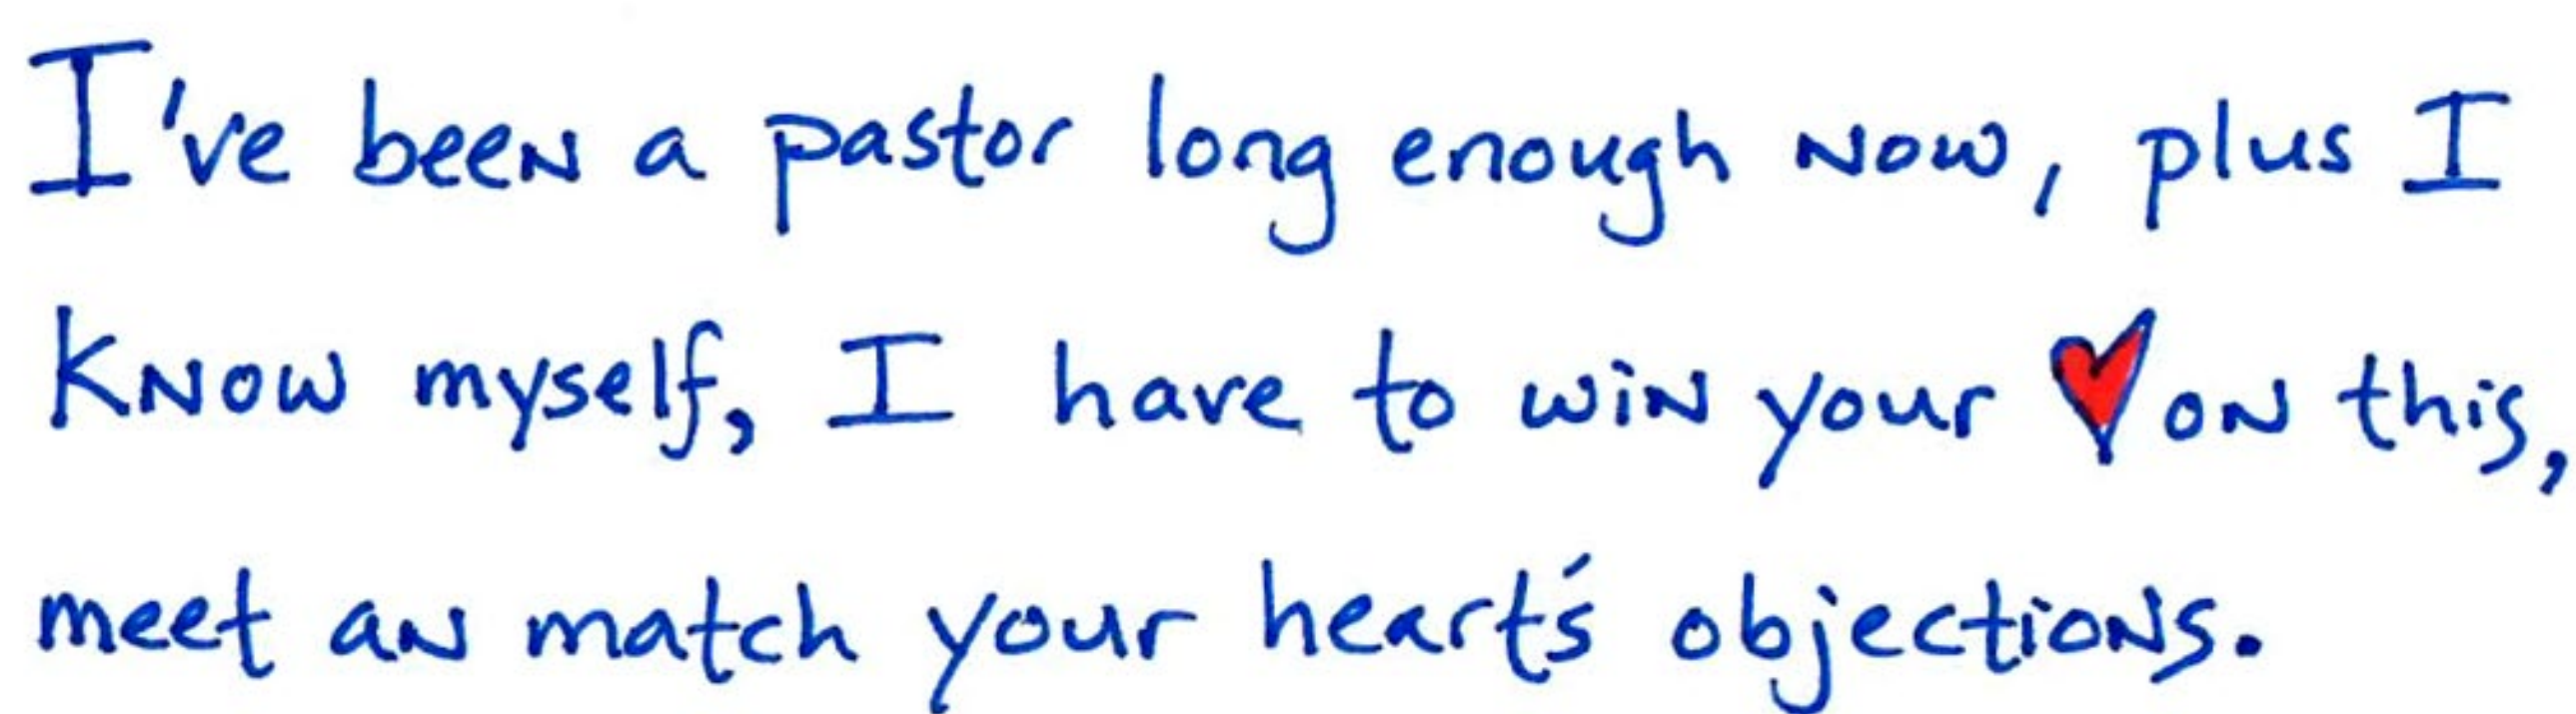 I've been a pastor long enough now, plus I
know myself, I have to win your ♥ on this,
meet an match your heart's objections.